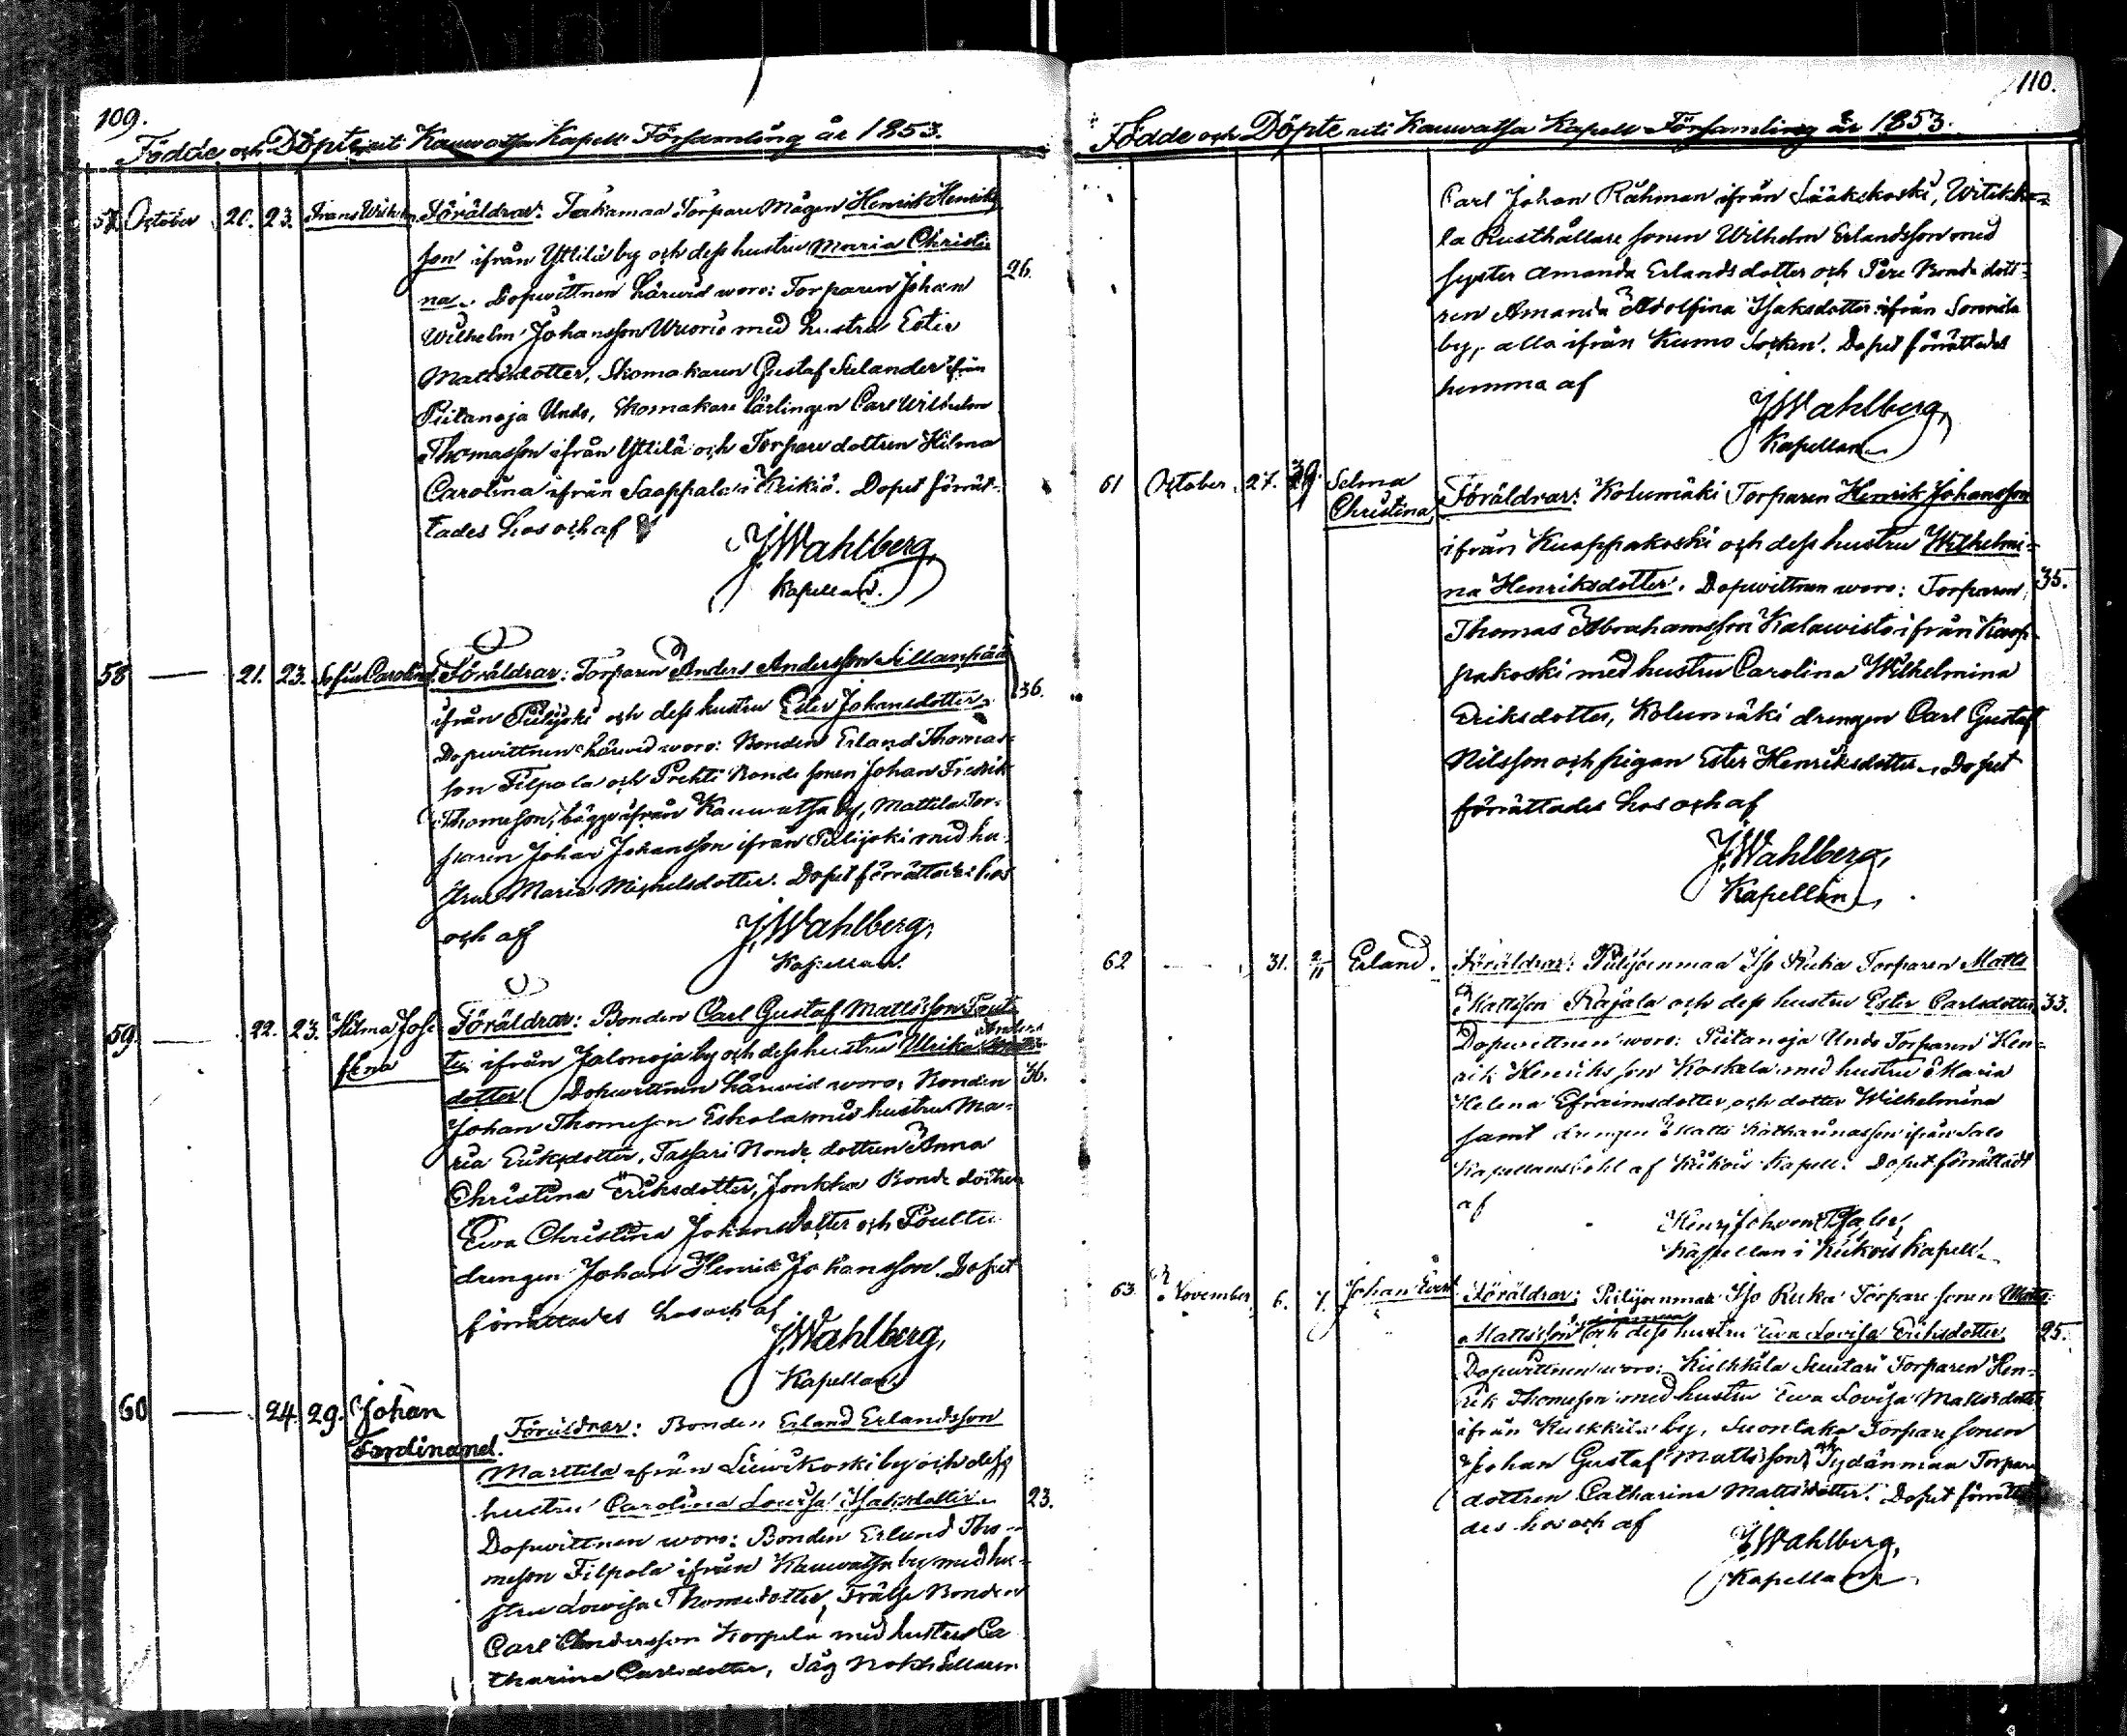 109.
Födde och Döpte uti Kauvatsa Kapell Församling år 1853.
57 October 20. 23. Frans Wilhelm Föräldrar: Torpare Mågen Henrik Henriks
son ifrån Yttilä by och dess hustru Maria Christi
na. Dopwittnen härwid woro: Torparen Johan 26.
Wilhelm Johansson med hustru Ester
Mattsdotter, Skomakaren Gustaf Selander ifrån
Piitanoja Unds, Skomakare lärlingen Carl Wilhelm
Thomasson ifrån Yttilä och Torpare dottren Hilma
Carolina ifrån i Kikois. Dopet förrät-
tades hos och af
J. Wahlberg,
Kapellan.
58 — 21. 23. Sofia Carolina. Föräldrar: Torparen Anders Andersson Sillanpää
ifrån Piilijoki och dess hustru Ester Johansdotter. 36.
Dopwittnen härwid woro: Bonden Erland Thomas-
son Filpola och Prehti Bonde sonen Johan Fredrik
Thomeson, bägge ifrån Kauwatsa by, Mattila Tor-
paren Johan Johansson ifrån Piilijoki med hu-
stru Maria Michelsdotter. Dopet förrättades hos
och af
J. Wahlberg,
Kapellan.
59 — 22. 23. Hilma Jose Föräldrar: Bonden Carl Gustaf Mattsson Poul
fina tu ifrån Jalonoja by och dess hustru Ulrika Anders
dotter. Dopwittnen härwid woro: Bonden 36.
Johan Thomeson Eskola med hustru Ma-
ria Eriksdotter, Tassari Bonde dottren Anna
Christina Eriksdotter, Jonkka Bonde dottren
Ewa Christina Johansdotter och Poultu
drengen Johan Henrik Johansson. Dopet
förrättades hos och af
J. Wahlberg,
Kapellan.
60 — 24. 29. Johan
Ferdinand. Föräldrar: Bonden Erland Erlandsson
Marttila ifrån Liewikoski by och dess
hustru Carolina Lowisa Isaksdotter. 23.
Dopwittnen woro: Bonden Erland Tho-
meson Filpola ifrån Kauwatsa by med hu-
stru Lowisa Thomedotter, Frälse Bonden
Carl Andersson Korpela med hustru Ca
tharina Carlsdotter, Såg
110.
Födde och Döpte uti Kauwatsa Kapell Församling år 1853.
Carl Johan Råhman ifrån Lääkskoski, Witikka-
la Rusthållare sonen Wilhelm Erlandsson med
syster Amanda Erlandsdotter och Bonde dott-
ren Amanda Adolfina Isaksdotter ifrån Sonnila
by, alla ifrån Kumo Socken. Dopet förrättades
hemma af
J. Wahlberg,
Kapellan.
61 October 27. 29. Selma
Christina. Föräldrar: Kolumäki Torparen Henrik Johansson
ifrån Kuoppakoski och dess hustru Wilhelmi-
na Henriksdotter. Dopwittnen woro: Torparen 35.
Thomas Abrahamsson Kalawisto ifrån Kuop-
pakoski med hustru Carolina Wilhelmina
Eriksdotter, Kolumäki drengen Carl Gustaf
Nilsson och pigan Ester Henriksdotter. Dopet
förrättades hos och af
J. Wahlberg,
Kapellan.
62 — 31. 2/11 Erland. Föräldrar: Piilijoenmaa Iso Kuka Torparen Matts
Mattsson Rajala och dess hustru Ester Carlsdotter 33.
Dopwittnen woro: Piitanoja Unds Torparen Hen-
rik Henriksson Koskela med hustru Maria
Helena Efraimsdotter, och dotter Wilhelmina
samt drengen Matts Katharinasson ifrån Salo
Kapellansbohl af Kikois Kapell. Dopet förrättadt
af
Henr. Johan
Kapellan i Kikois Kapell.
63. November 6. 7. Johan Evert Föräldrar: Piilijoenmaa Iso Kuka Torpare sonen Matts
Mattsson och dess hustru Ewa Lovisa Eriksdotter 25.
Dopwittnen woro: Kulkkila Suutari Torparen Hen-
rik Thomeson med hustru Ewa Lovisa Mattsdotter
ifrån Kulkkila by, Suontaka Torpare sonen
Johan Gustaf Mattsson och Sydänmaa Torpare
dottren Catharina Mattsdotter. Dopet förrätta-
des hos och af
J. Wahlberg,
Kapellan.